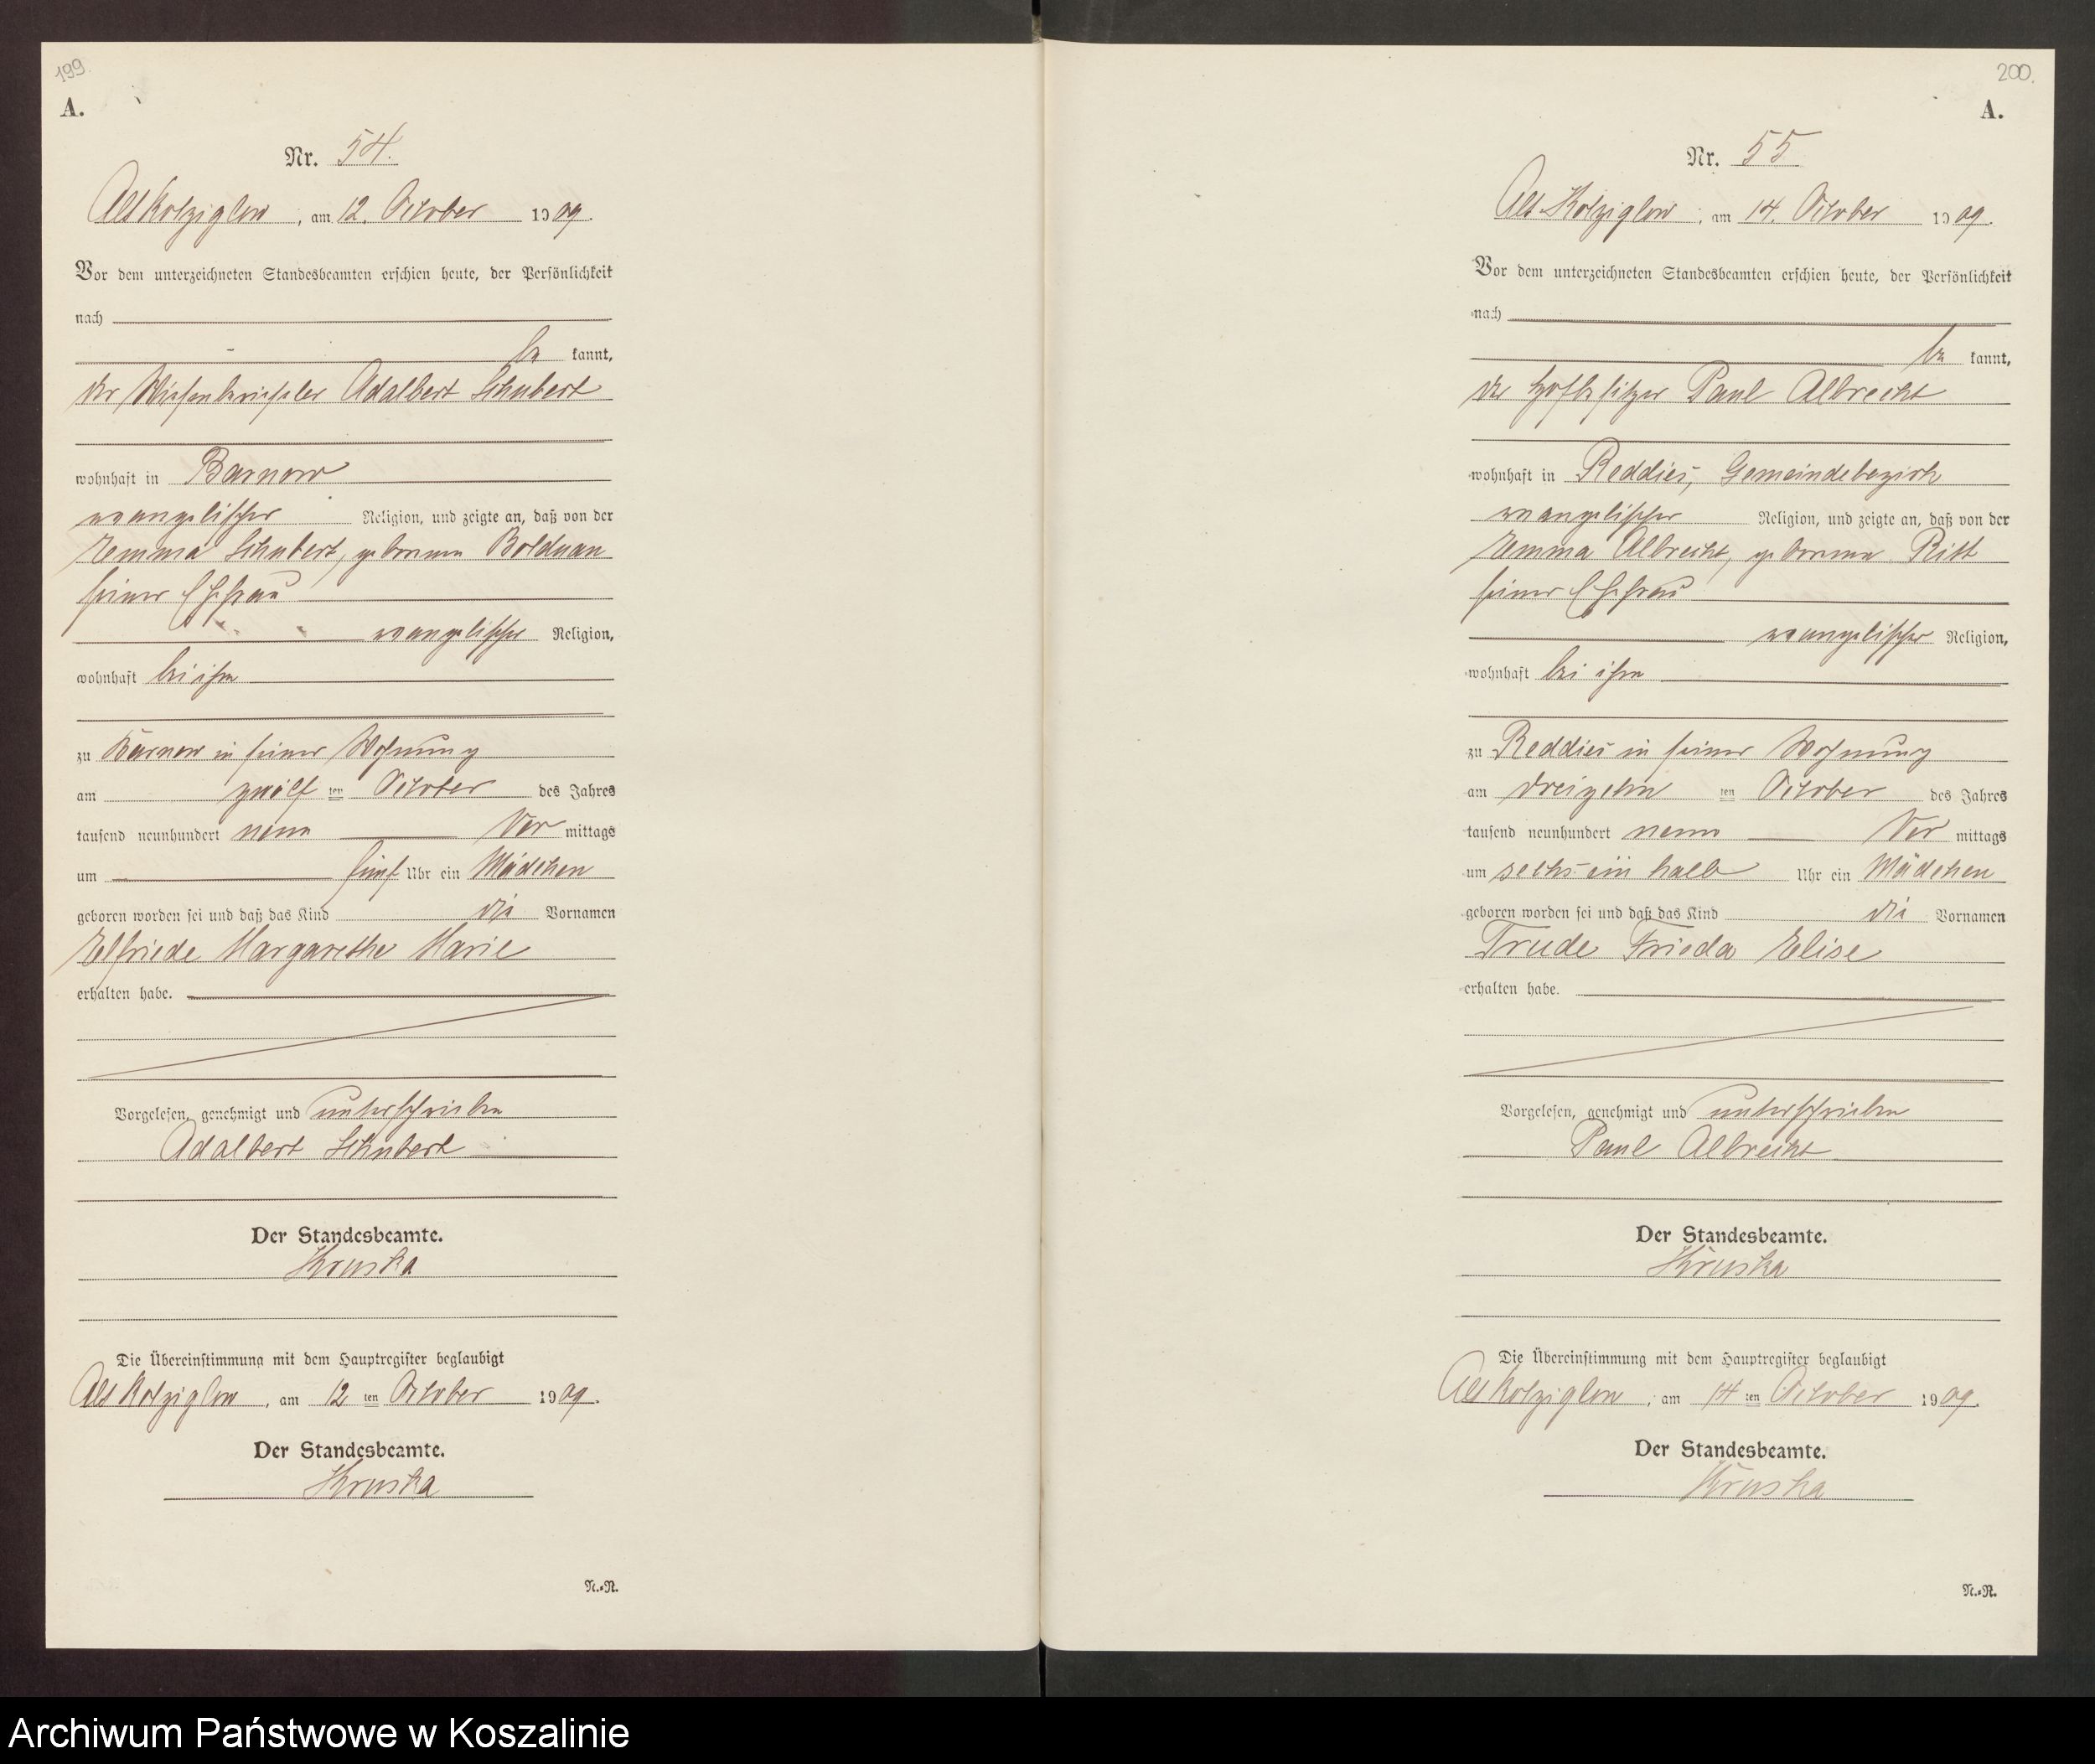 199.
A.
Nr. 54.
Alt Kolziglow, am 12. October 1909.
Vor dem unterzeichneten Standesbeamten erschien heute, der Persönlichkeit
nach
be kannt,
der Adalbert Schubert
wohnhaft in Barnow
evangelischer Religion, und zeigte an, daß von der
Emma Schubert, geborenen Bolduan
seiner Ehefrau
evangelischer Religion,
wohnhaft bei ihm
zu Barnow in seiner Wohnung
am zwölf ten October des Jahres
tausend neunhundert neun Vor mittags
um fünf Uhr ein Mädchen
geboren worden sei und daß das Kind die Vornamen
Elfriede Margarethe Marie
erhalten habe.
Vorgelesen, genehmigt und unterschrieben
Adalbert Schubert
Der Standesbeamte.
Kruska
Die Übereinstimmung mit dem Hauptregister beglaubigt
Alt Kolziglow, am 12 ten October 1909.
Der Standesbeamte.
Kruska
N.=R.
200.
A.
Nr. 55
Alt Kolziglow, am 14. October 1909.
Vor dem unterzeichneten Standesbeamten erschien heute, der Persönlichkeit
nach
be kannt,
der Hofbesitzer Paul Albrecht
wohnhaft in Reddies, Gemeindebezirk
evangelischer Religion, und zeigte an, daß von der
Emma Albrecht, geborenen
seiner Ehefrau
evangelischer Religion,
wohnhaft bei ihm
zu Reddies in seiner Wohnung
am dreizehn ten October des Jahres
tausend neunhundert neun Vor mittags
um sechs ein halb Uhr ein Mädchen
geboren worden sei und daß das Kind die Vornamen
Trude Frieda Elise
erhalten habe.
Vorgelesen, genehmigt und unterschrieben
Paul Albrecht
Der Standesbeamte.
Kruska
Die Übereinstimmung mit dem Hauptregister beglaubigt
Alt Kolziglow, am 14 ten October 1909.
Der Standesbeamte.
Kruska
N.=R.
Archiwum Państwowe w Koszalinie